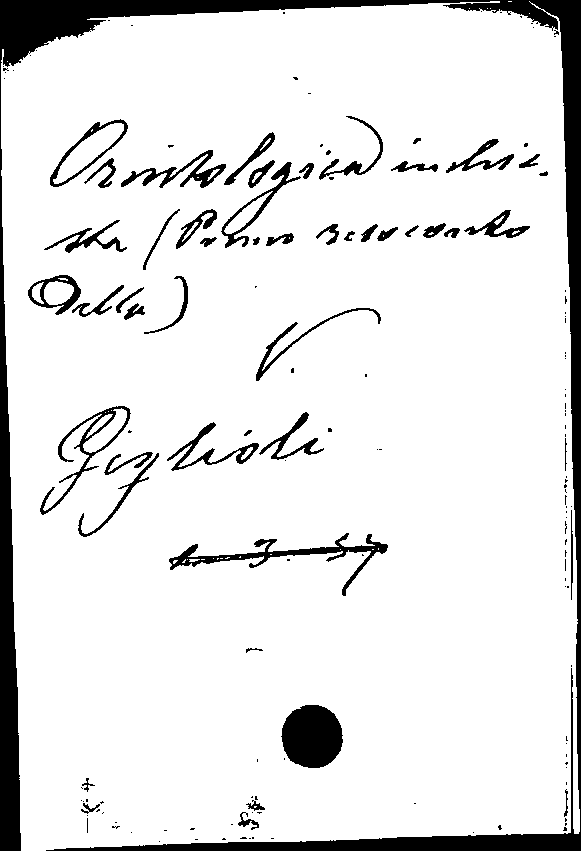 Ornitologica) inchie-
sta (Primo resoconto
della)
V.
Giglioli
3. 57